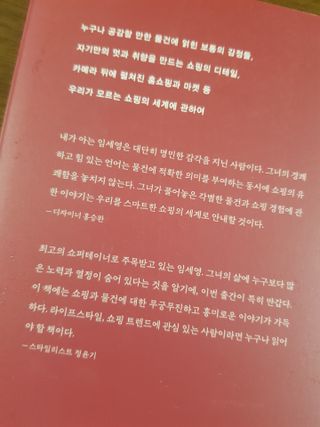 누구나 공감할 만한 물건에 얽힌 보통의 감정들,
자기만의 멋과 취향을 만드는 쇼핑의 디테일,
카메라 뒤에 펼쳐진 홈쇼핑과 마켓 등
우리가 모르는 쇼핑의 세계에 관하여
내가 아는 임세영은 대단히 명민한 감각을 지닌 사람이다. 그녀의 경쾌
하고 힘 있는 언어는 물건에 적확한 의미를 부여하는 동시에 쇼핑의 유
쾌함을 놓치지 않는다. 그녀가 풀어놓은 각별한 물건과 쇼핑 경험에 관
한 이야기는 우리를 스마트한 쇼핑의 세계로 안내할 것이다.
– 디자이너 홍승완
최고의 쇼퍼테이너로 주목받고 있는 임세영. 그녀의 삶에 누구보다 많
은 노력과 열정이 숨어 있다는 것을 알기에, 이번 출간이 특히 반갑다.
이 책에는 쇼핑과 물건에 대한 무궁무진하고 흥미로운 이야기가 가득
하다. 라이프스타일, 쇼핑 트렌드에 관심 있는 사람이라면 누구나 읽어
야 할 책이다.
– 스타일리스트 정윤기